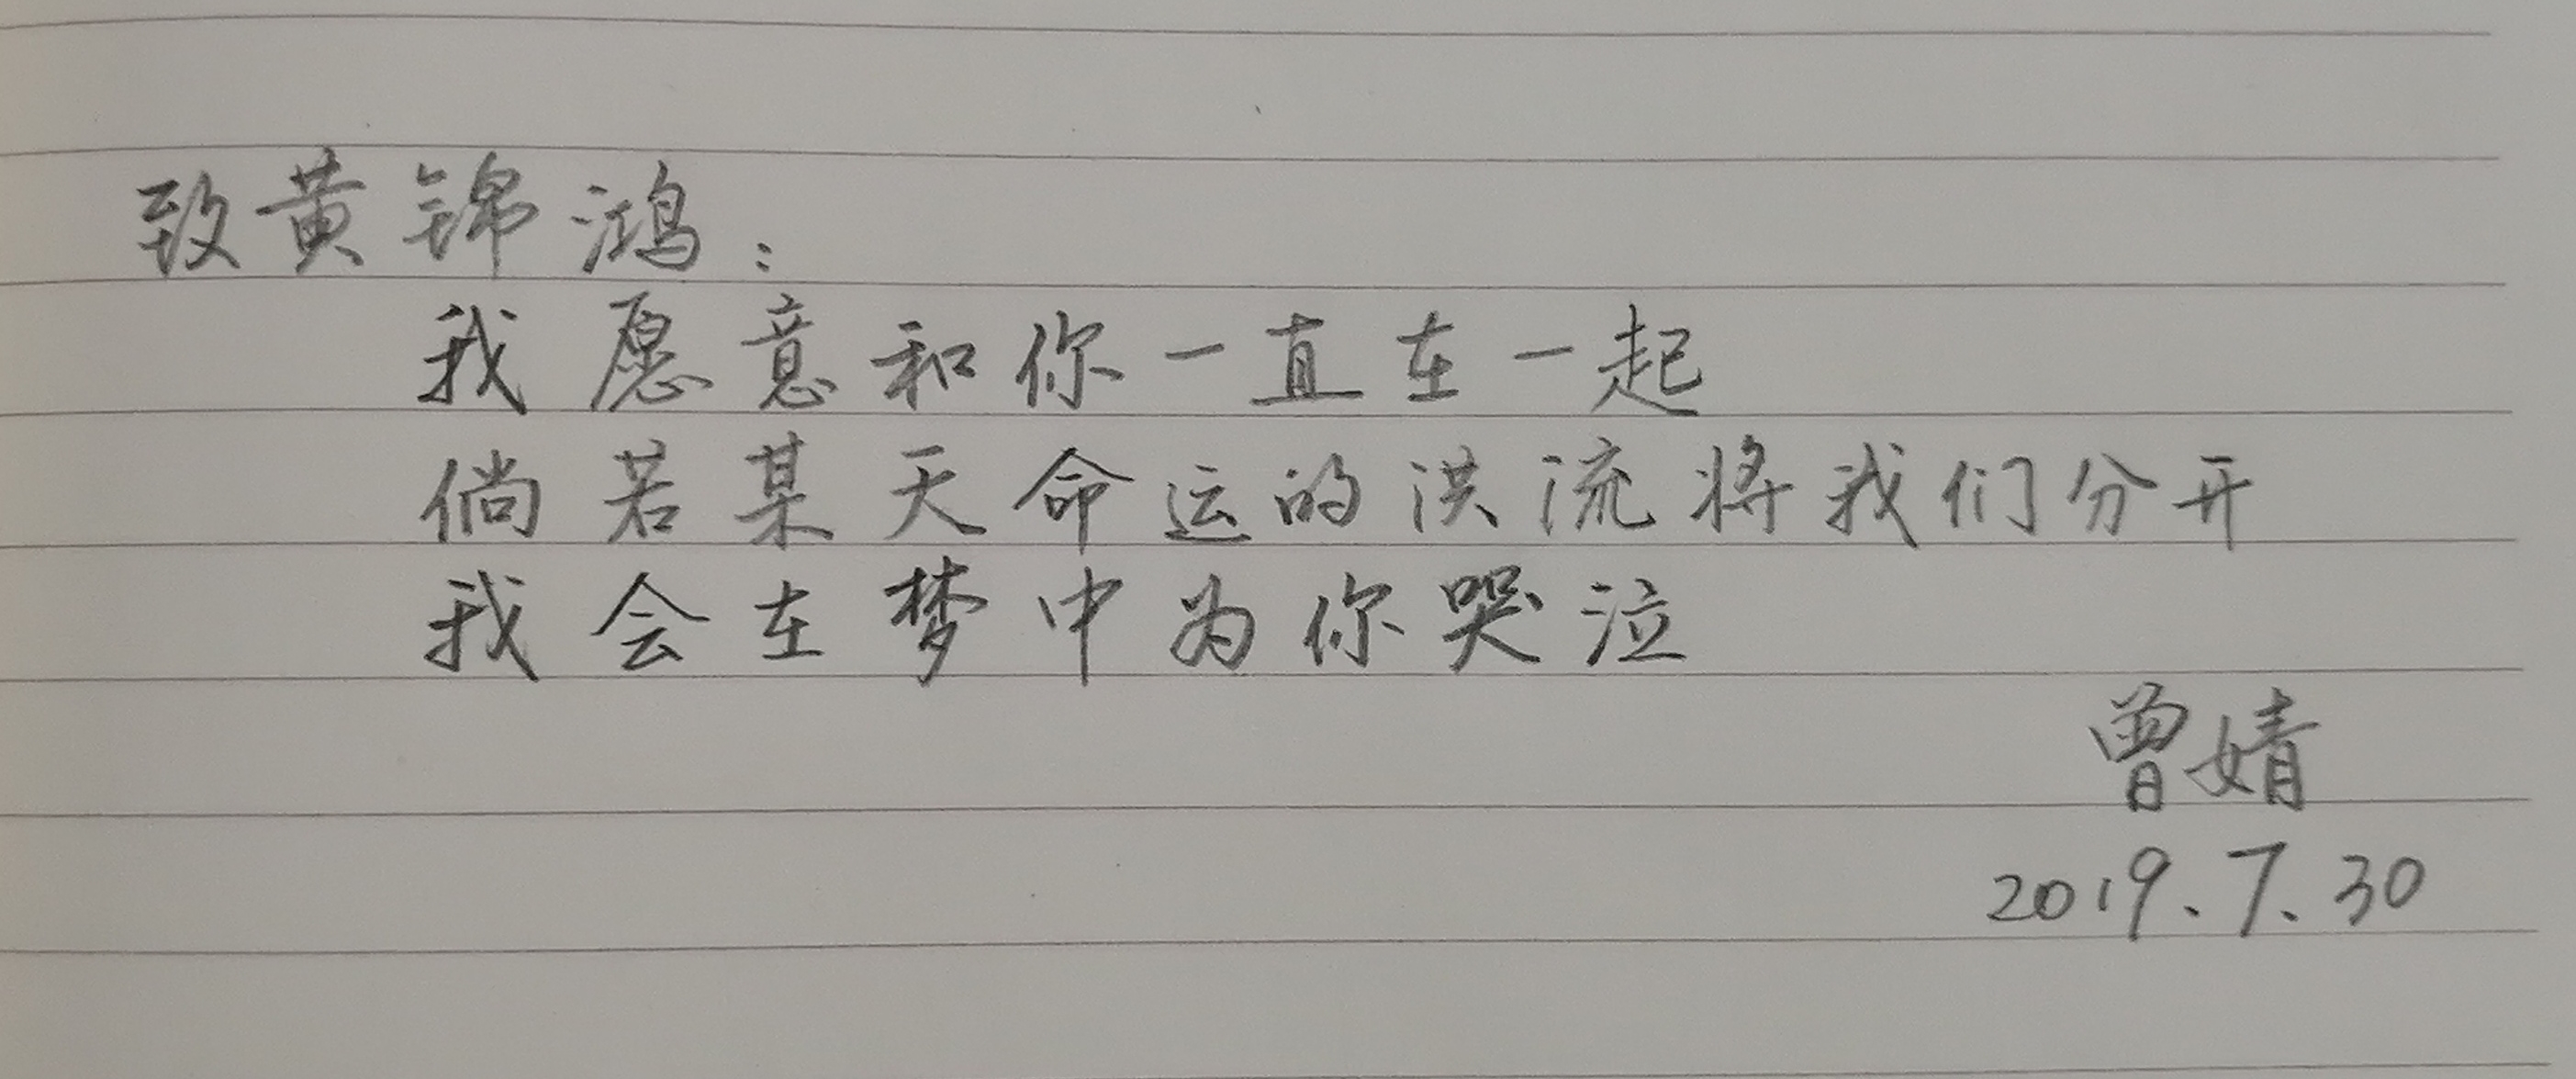 致黄锦鸿：
我愿意和你一直在一起
倘若某天命运的洪流将我们分开
我会在梦中为你哭泣
曾婧
2019.7.30